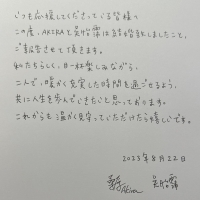 いつも応援してくださっている皆様へ
この度、AKIRAと呉怡霈は結婚致しましたこと、
ご報告させて頂きます。
私たちらしく、共に楽しみながら、
二人で、暖かく充実した時間を過ごせるよう、
共に人生を歩んでいきたいと思っております。
これからも温かく見守っていただけたら嬉しいです。
2023年8月22日
Akira 呉怡霈